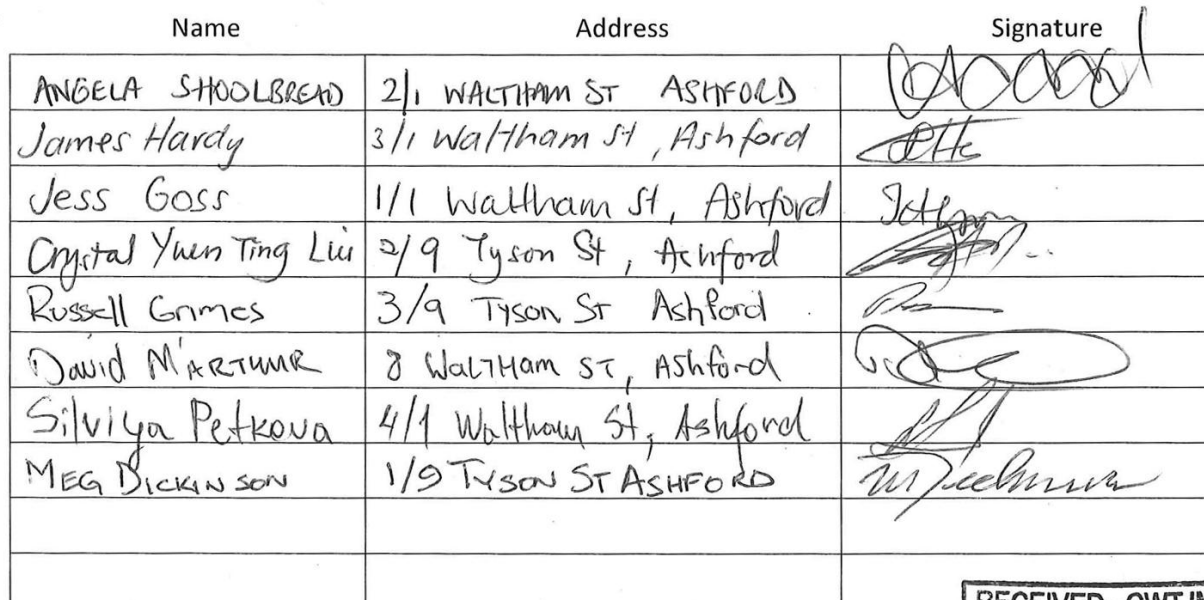 Name Address Signature
ANGELA SHOOLBREAD 2/1 WALTHAM ST ASHFORD
James Hardy 3/1 Waltham St, Ashford
Jess Goss 1/1 Waltham St, Ashford
Crystal Yuen Ting Liu 2/9 Tyson St, Ashford
Russell Grimes 3/9 Tyson St Ashford
David M'ARTHUR 8 WALTHAM ST, Ashford
Silviya Petkova 4/1 Waltham St, Ashford
MEG DICKINSON 1/9 TYSON ST ASHFORD
RECEIVED